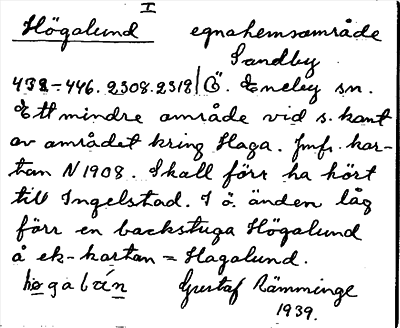 I
Högalund egnahemsområde
Sandby
438-446. 2308. 2318/Ö. Eneby sn.
Ett mindre område vid s. kant
av området kring Haga. Jmfr. kar-
tan N 1908. Skall förr ha hört
till Ingelstad. I ö. änden låg
förr en backstuga Högalund
å ek-kartan = Hagalund.
Gustaf Rämminge
1939.